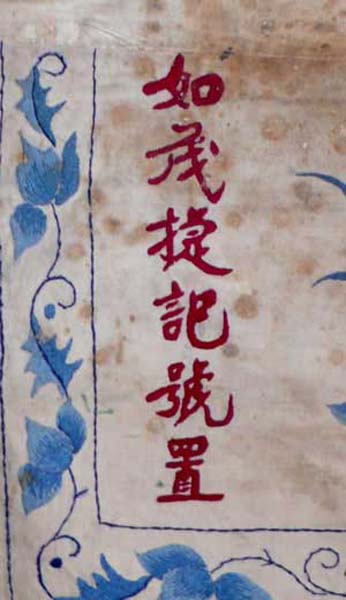 如茂捷記號置